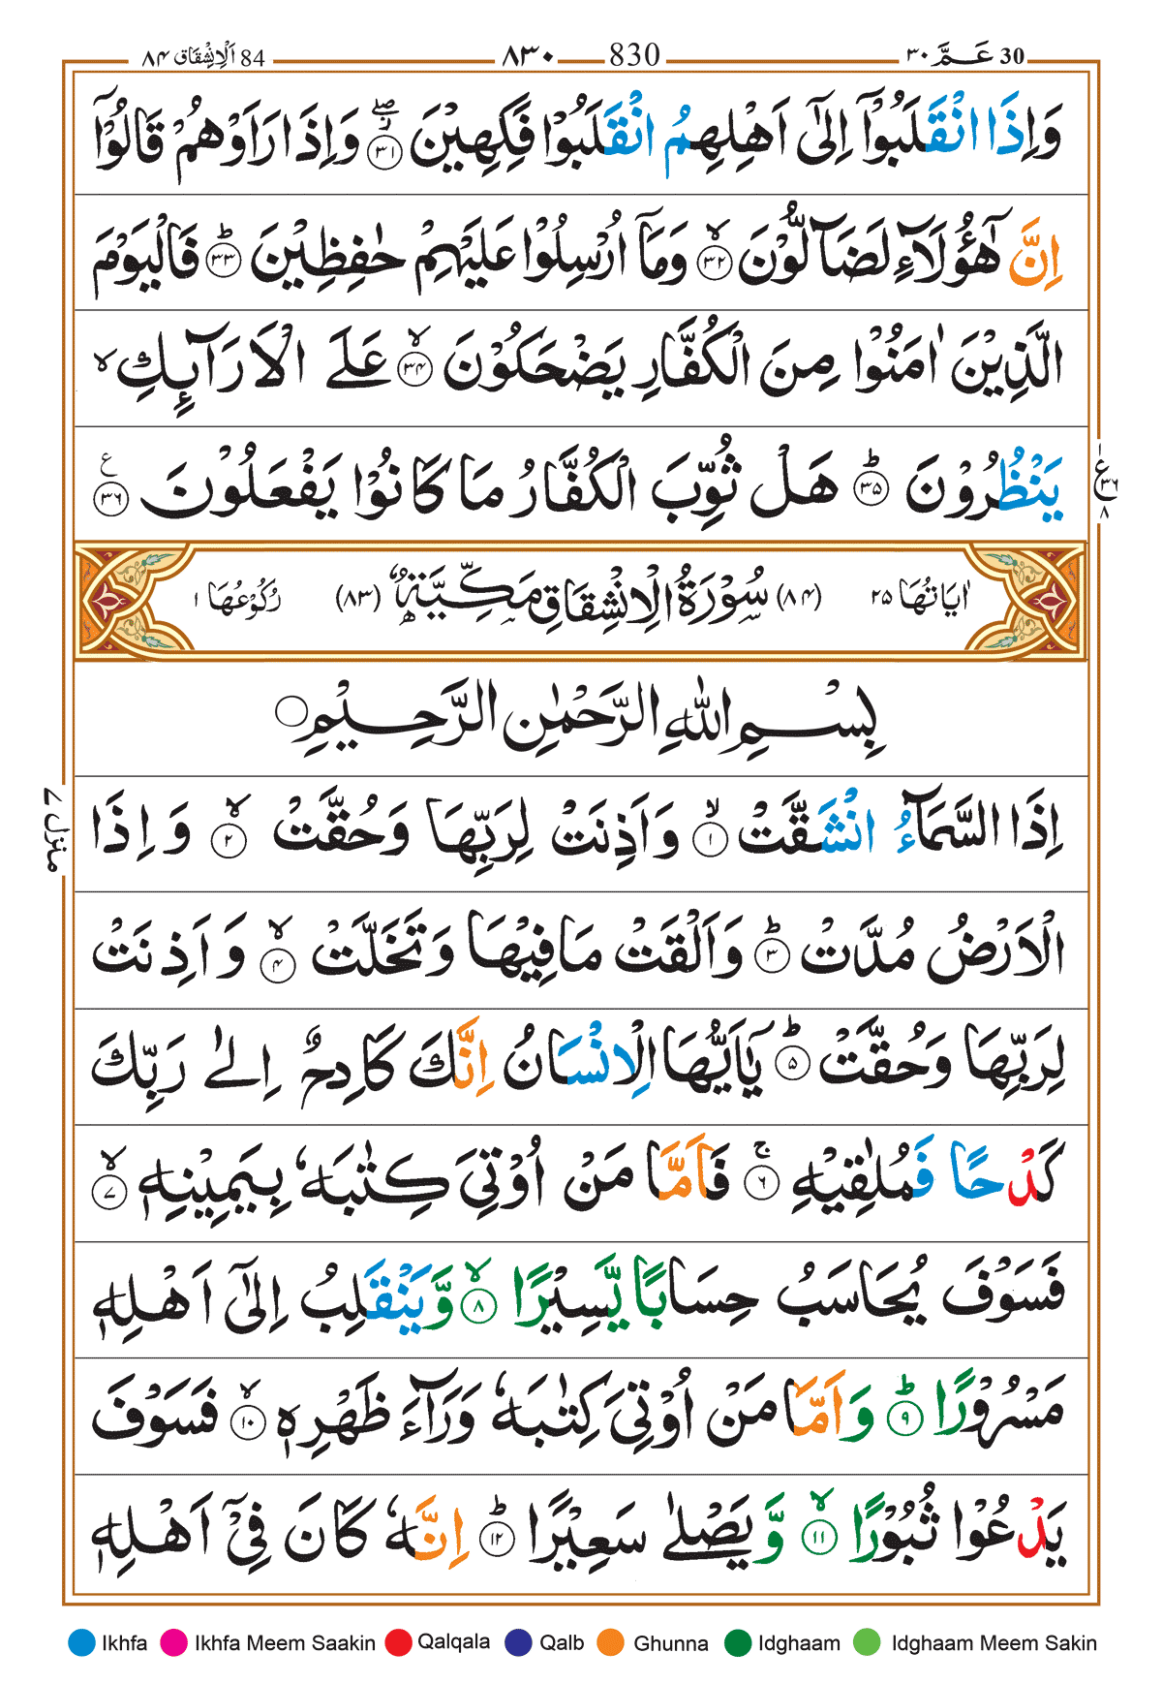 30 عَـمَّ ۳۰ 830 ۸۳۰ 84 اَلْاِنْشِقَاق ۸۴
وَاِذَا انْقَلَبُوْۤا اِلٰۤى اَهْلِهِمُ انْقَلَبُوْا فَكِهِيْنَ ۳۱ۖ ز وَاِذَا رَاَوْهُمْ قَالُوْۤا
اِنَّ هٰۤؤُلَآءِ لَضَآلُّوْنَ ۳۲ۙ وَمَاۤ اُرْسِلُوْا عَلَيْهِمْ حٰفِظِيْنَ ۳۳ؕ فَالْيَوْمَ
الَّذِيْنَ اٰمَنُوْا مِنَ الْكُفَّارِ يَضْحَكُوْنَ ۳۴ۙ عَلَى الْاَرَآىِٕكِ ۙ
يَنْظُرُوْنَ ۳۵ؕ هَلْ ثُوِّبَ الْكُفَّارُ مَا كَانُوْا يَفْعَلُوْنَ ۳۶ ع
ع ۱ ۳۶ ۸
اٰيَاتُهَا ۲۵ (۸۴) سُوْرَةُ الْاِنْشِقَاقِ مَكِّيَّةٌ (۸۳) رُكُوْعُهَا ۱
بِسْمِ اللّٰهِ الرَّحْمٰنِ الرَّحِيْمِ
اِذَا السَّمَآءُ انْشَقَّتْ ۱ۙ وَاَذِنَتْ لِرَبِّهَا وَحُقَّتْ ۲ۙ وَاِذَا
منزل ۷
الْاَرْضُ مُدَّتْ ۳ؕ وَاَلْقَتْ مَا فِيْهَا وَتَخَلَّتْ ۴ۙ وَاَذِنَتْ
لِرَبِّهَا وَحُقَّتْ ۵ؕ يٰۤاَيُّهَا الْاِنْسَانُ اِنَّكَ كَادِحٌ اِلٰى رَبِّكَ
كَدْحًا فَمُلٰقِيْهِ ۶ۚ فَاَمَّا مَنْ اُوْتِيَ كِتٰبَهٗ بِيَمِيْنِهٖ ۷ۙ
فَسَوْفَ يُحَاسَبُ حِسَابًا يَّسِيْرًا ۸ۙ وَّيَنْقَلِبُ اِلٰۤى اَهْلِهٖ
مَسْرُوْرًا ۹ؕ وَاَمَّا مَنْ اُوْتِيَ كِتٰبَهٗ وَرَآءَ ظَهْرِهٖ ۱۰ۙ فَسَوْفَ
يَدْعُوْا ثُبُوْرًا ۱۱ۙ وَّيَصْلٰى سَعِيْرًا ۱۲ؕ اِنَّهٗ كَانَ فِيْۤ اَهْلِهٖ
Ikhfa Ikhfa Meem Saakin Qalqala Qalb Ghunna Idghaam Idghaam Meem Sakin